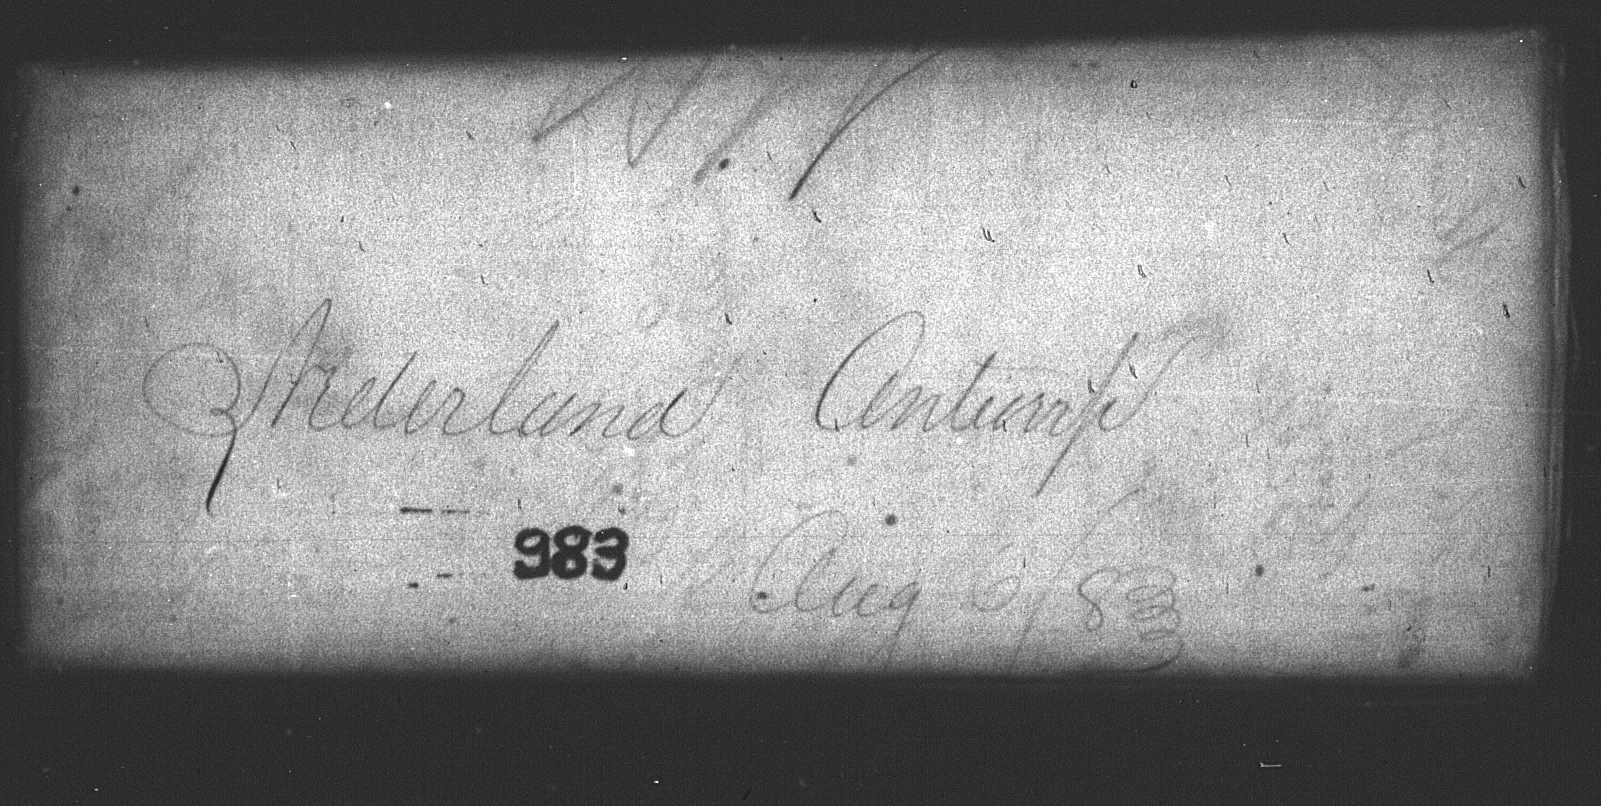 N.Y
Nederland Antwrp
983
Aug 6/83